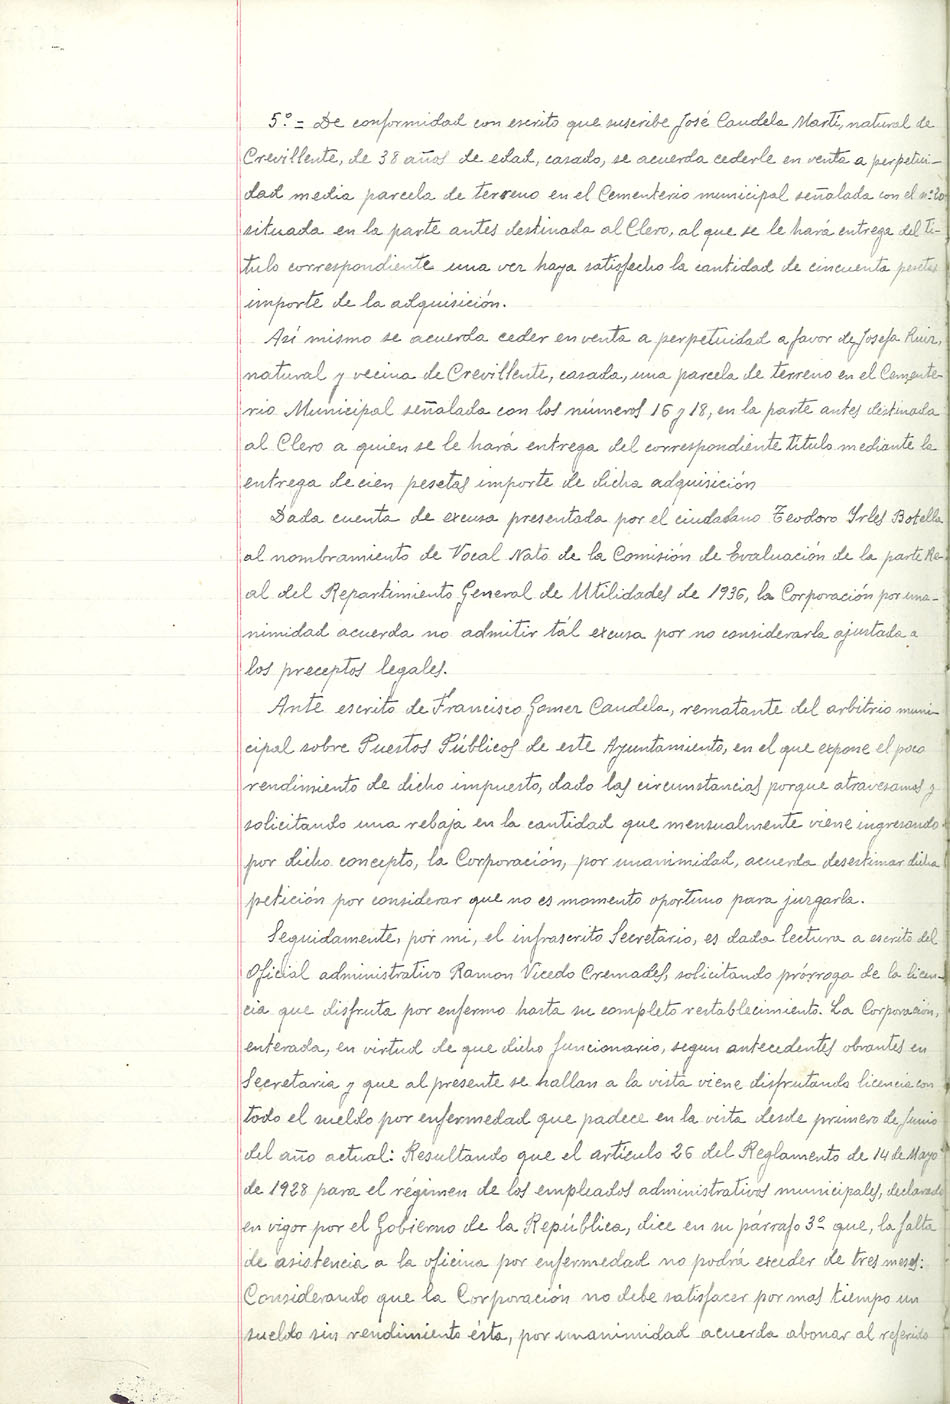 5º = De conformidad con escrito que suscribe José Candela Martí, natural de
Crevillente, de 38 años de edad, casado, se acuerda cederle en venta a perpetui-
dad media parcela de terreno en el Cementerio municipal señalada con el nº 20
situada en la parte antes destinada al Clero, al que se le hará entrega del tí-
tulo correspondiente una vez haya satisfecho la cantidad de cincuenta pesetas
importe de la adquisición.
Así mismo se acuerda ceder en venta a perpetuidad a favor de Josefa Ruiz,
natural y vecina de Crevillente, casada, una parcela de terreno en el Cemente-
rio Municipal señalada con los números 16 y 18, en la parte antes destinada
al Clero a quien se le hará entrega del correspondiente título mediante la
entrega de cien pesetas importe de dicha adquisición
Dada cuenta de excusa presentada por el ciudadano Teodoro Irles Botella
al nombramiento de Vocal Nato de la Comisión de Evaluación de la parte Re-
al del Repartimiento General de Utilidades de 1936, la Corporación por una-
nimidad acuerda no admitir tál excusa por no considerarla ajustada a
los preceptos legales.
Ante escrito de Francisco Gomez Candela, rematante del arbitrio muni-
cipal sobre Puestos Públicos de este Ayuntamiento, en el que expone el poco
rendimiento de dicho impuesto, dado las circunstancias porque atravesamos y
solicitando una rebaja en la cantidad que mensualmente viene ingresando
por dicho concepto, la Corporación, por unanimidad, acuerda desestimar dicha
petición por considerar que no es momento oportuno para juzgarla.
Seguidamente, por mi, el infrascrito Secretario, es dada lectura a escrito del
Oficial administrativo Ramon Vicedo Cremades, solicitando prórroga de la licen-
cia que disfruta por enfermo hasta su completo restablecimiento. La Corporación,
enterada, en virtud de que dicho funcionario, segun antecedentes obrantes en
Secretaria y que al presente se hallan a la vista viene disfrutando licencia con
todo el sueldo por enfermedad que padece en la vista desde primero de Junio
del año actual: Resultando que el artículo 26 del Reglamento de 14 de Mayo
de 1928 para el régimen de los empleados administrativos municipales, declarado
en vigor por el Gobierno de la República, dice en su párrafo 3º que, la falta
de asistencia a la oficina por enfermedad no podrá exceder de tres meses:
Considerando que la Corporación no debe satisfacer por mas tiempo un
sueldo sin rendimiento ésta, por unanimidad acuerda abonar al referido